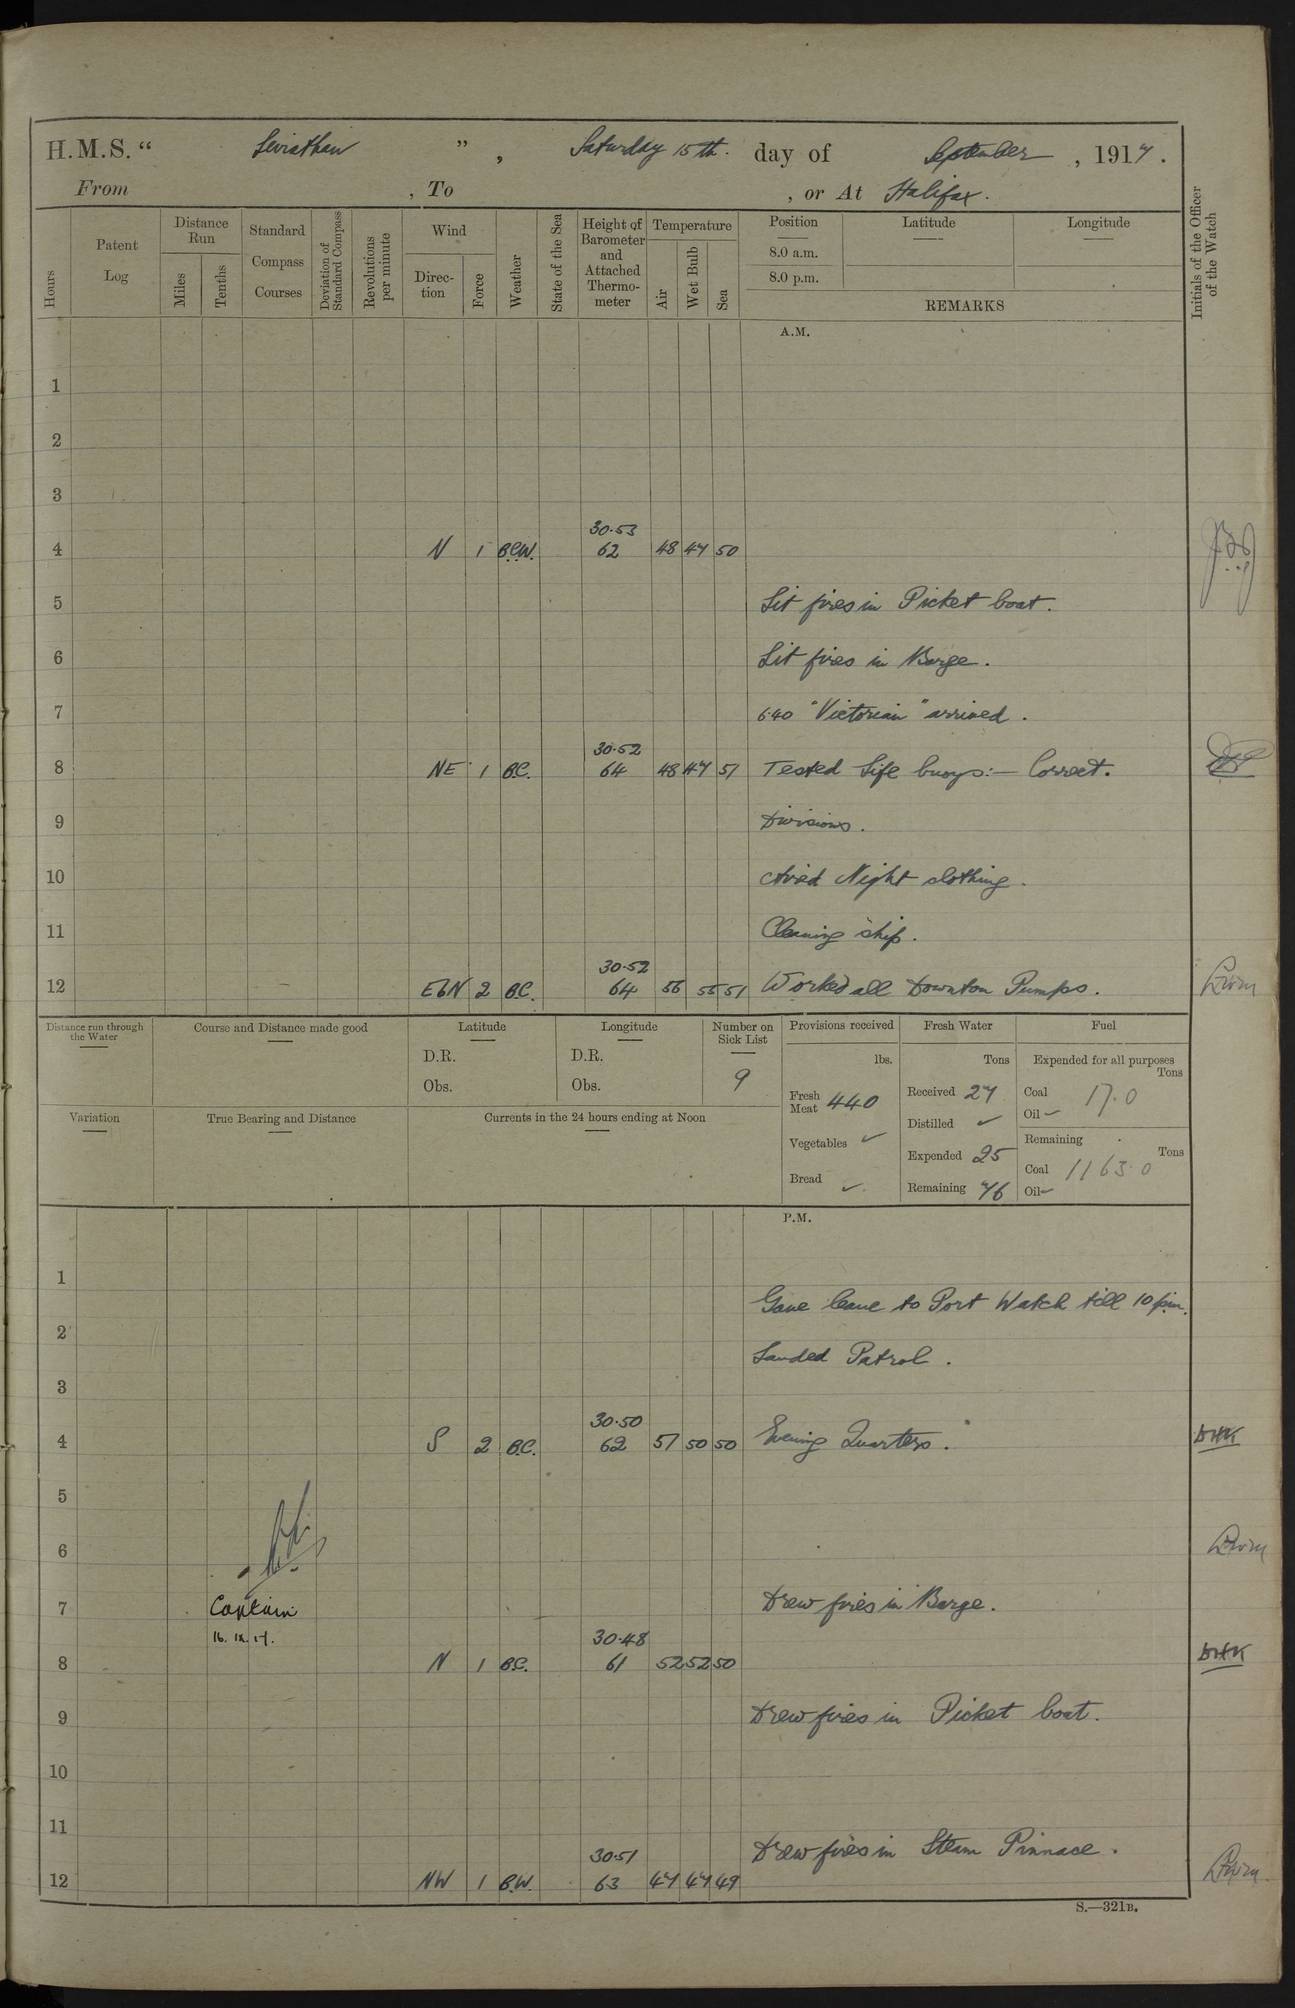 H.M.S. “ Leviathan ” , Saturday 15th. day of September , 1917.
From , To , or At Halifax.
Hours
Patent Log
Distance Run
Miles
Tenths
Standard Compass Courses
Deviation of Standard Compass
Revolutions per minute
Wind
Direc-tion
Force
Weather
State of the Sea
Height of Barometer and Attached Thermo-meter
Temperature
Air
Wet Bulb
Sea
Position
8.0 a.m.
8.0 p.m.
Latitude
Longitude
REMARKS
Initials of the Officer of the Watch
A.M.
1
2
3
30.53
4 N 1 B.C.W. 62 48 47 50
5 Lit fires in Picket boat.
6 Lit fires in Barge.
7 6.40 "Victorian" arrived.
30.52
8 NE 1 B.C. 64 48 47 51 Tested Life buoys:— Correct.
9 Divisions.
10 Aired Night clothing.
11 Cleaning ship.
30.52
12 EbN 2 B.C. 64 56 55 51 Worked all Downton Pumps.
Distance run through the Water
Course and Distance made good
Latitude
D.R.
Obs.
Longitude
D.R.
Obs.
Number on Sick List
9
Provisions received
lbs.
Fresh Meat 440
Vegetables ✓
Bread ✓
Fresh Water
Tons
Received 27
Distilled ✓
Expended 25
Remaining 76
Fuel
Expended for all purposes
Tons
Coal 17.0
Oil ✓
Remaining
Tons
Coal 1163.0
Oil ✓
Variation
True Bearing and Distance
Currents in the 24 hours ending at Noon
P.M.
1
Gave leave to Port Watch till 10 p.m.
2
Landed Patrol.
3
30.50
4 S 2 B.C. 62 51 50 50 Evening Quarters. DHK
5
6
7 Captain Drew fires in Barge.
16.IX.17.
30.48
8 N 1 B.C. 61 52 52 50 DHK
9 Drew fires in Picket boat.
10
11
Drew fires in Steam Pinnace.
30.51
12 NW 1 B.W. 63 47 47 49
S.—321B.